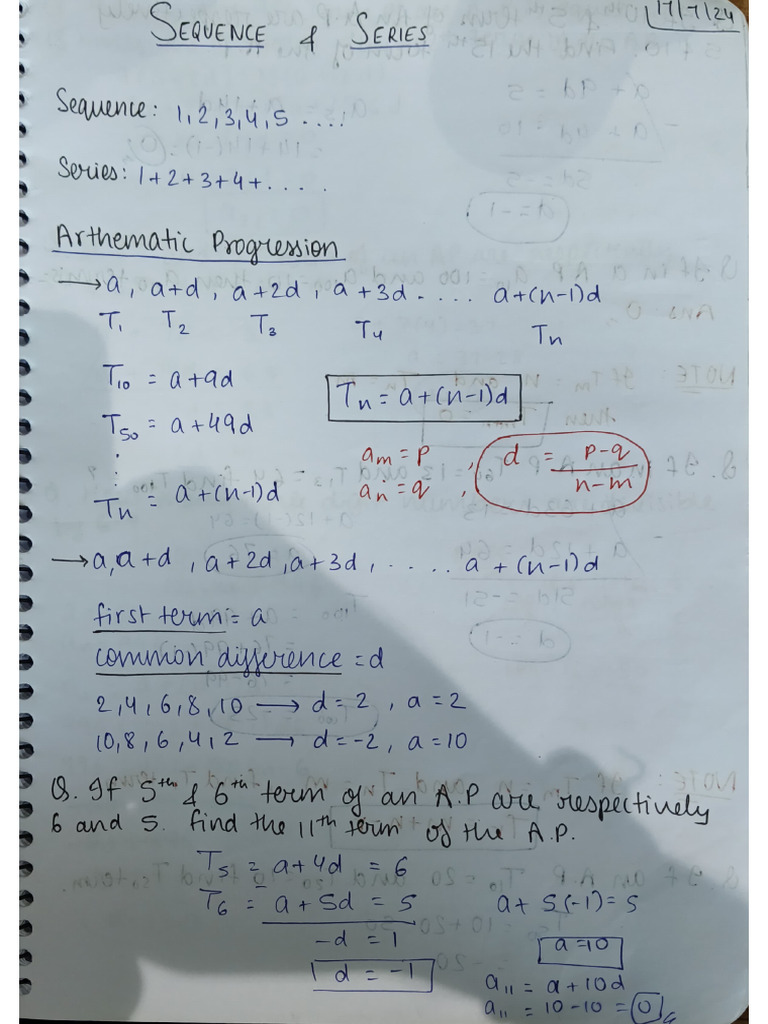 17/7/24
SEQUENCE & SERIES
Sequence: 1, 2, 3, 4, 5 ....
Series: 1+2+3+4+....
Arthematic Progression
→ a, a+d, a+2d, a+3d .... a+(n-1)d
T₁ T₂ T₃ T₄ Tₙ
T₁₀ = a+9d
Tₙ = a+(n-1)d
T₅₀ = a+49d
aₘ = p, d = p-q / n-m
aₙ = q,
⋮
Tₙ = a+(n-1)d
→ a, a+d, a+2d, a+3d, ..... a + (n-1)d
first term = a
common difference = d
2, 4, 6, 8, 10 → d=2, a=2
10, 8, 6, 4, 2 → d=-2, a=10
Q. If 5th & 6th term of an A.P are respectively
6 and 5. find the 11th term of the A.P.
T₅ = a+4d = 6
T₆ = a+5d = 5
a+ 5(-1)=5
-d = 1
a=10
d = -1
a₁₁ = a+10d
a₁₁ = 10-10 = 0